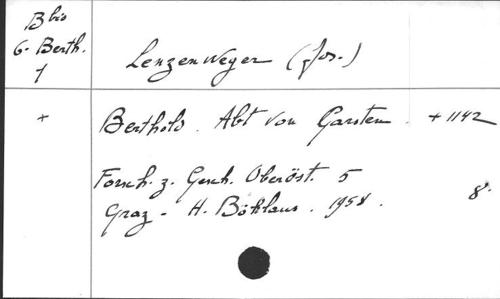 B bis
6. Berth.
1
Lenzenweger (Jos.)
+
Berthold. Abt von Garsten. + 1142
Forsch. z. Gesch. Oberöst. 5
Graz - H. Böhlaus. 1958.
8°